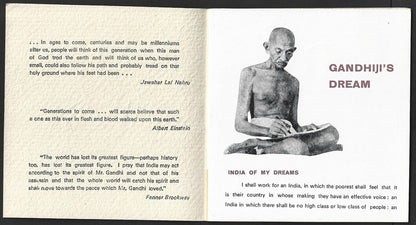 ... In ages to come, centuries and may be millenniums
after us, people will think of this generation when this man
of God trod the earth and will think of us who, however
small, could also follow his path and probably tread on that
holy ground where his feet had been ...
Jawahar Lal Nehru
"Generations to come ... will scarce believe that such
a one as this ever in flesh and blood walked upon this earth."
Albert Einstein
"The world has lost its greatest figure—perhaps history
too, has lost its greatest figure. I pray that India may act
according to the spirit of Mr. Gandhi and not that of his
assassin and that the whole world will catch his spirit and
shall move towards the peace which Mr. Gandhi loved."
Fenner Brockway
GANDHIJI'S
DREAM
INDIA OF MY DREAMS
I shall work for an India, in which the poorest shall feel that it
is their country in whose making they have an effective voice : an
India in which there shall be no high class or low class of people : an